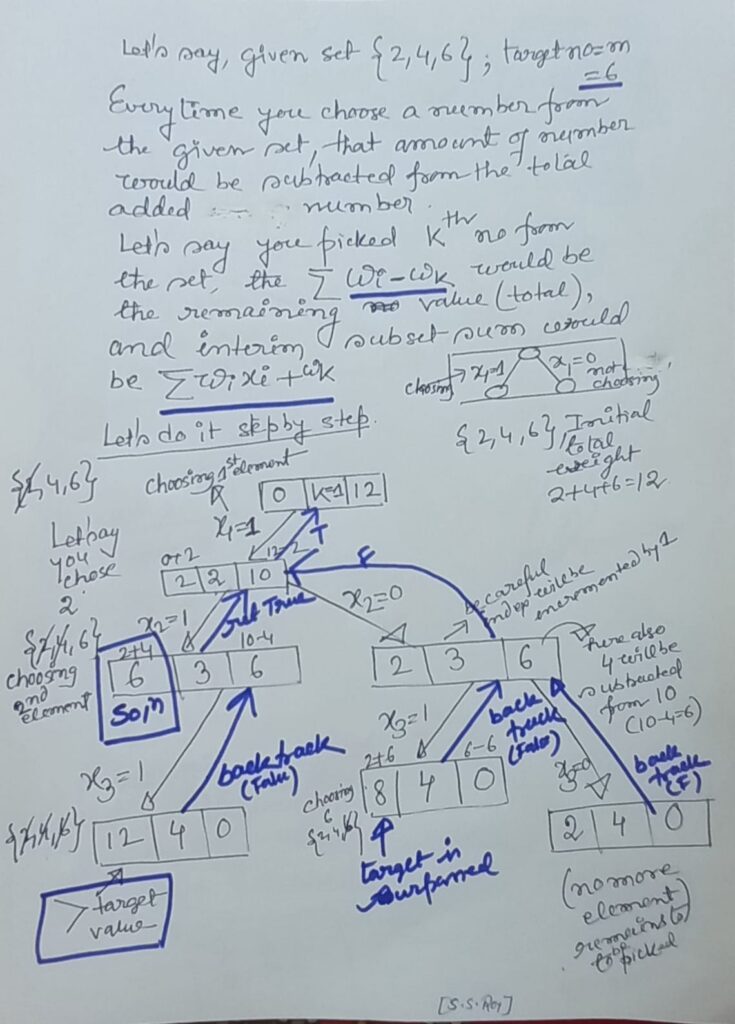 Let's say, given set {2,4,6}; target no=m
=6
Everytime you choose a number from
the given set, that amount of number
would be subtracted from the total
added number.
Let's say you picked kth no from
the set, the Σ wi-wk would be
the remaining value (total),
and interim subset sum would
be Σwixi+wk
choosing → x1=1 x1=0 not choosing
Let's do it step by step.
{2,4,6}, Initial
total
weight
2+4+6=12
{2,4,6}
choosing 1st element
0 | k=1 | 12
x1=1
T
Let's say
you
chose
2
0+2
12-2
2 | 2 | 10
F
x2=1
ret True
x2=0
be careful
index will be
incremented by 1
{2,4,6}
choosing
2nd
element
2+4
10-4
6 | 3 | 6
Soln
2 | 3 | 6
here also
4 will be
subtracted
from 10
(10-4=6)
x3=1
backtrack
(False)
x3=1
back
track
(False)
x3=0
back
track
(F)
{2,4,6}
12 | 4 | 0
> target
value
choosing
6
{2,4,6}
2+6
6-6
8 | 4 | 0
target is
surpassed
2 | 4 | 0
(no more
element)
remains to
be picked
[S.S. Roy]